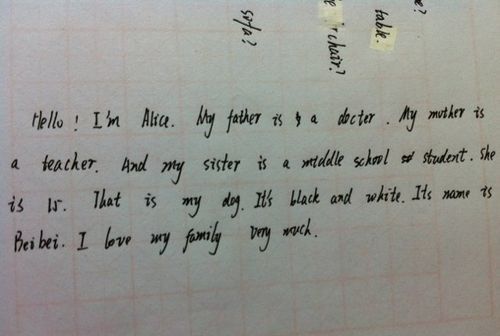 sofa?
chair?
table.
e?
Hello! I'm Alice. My father is a docter. My mother is
a teacher. And my sister is a middle school student. She
is 15. That is my dog. It's black and white. Its name is
Beibei. I love my family very much.